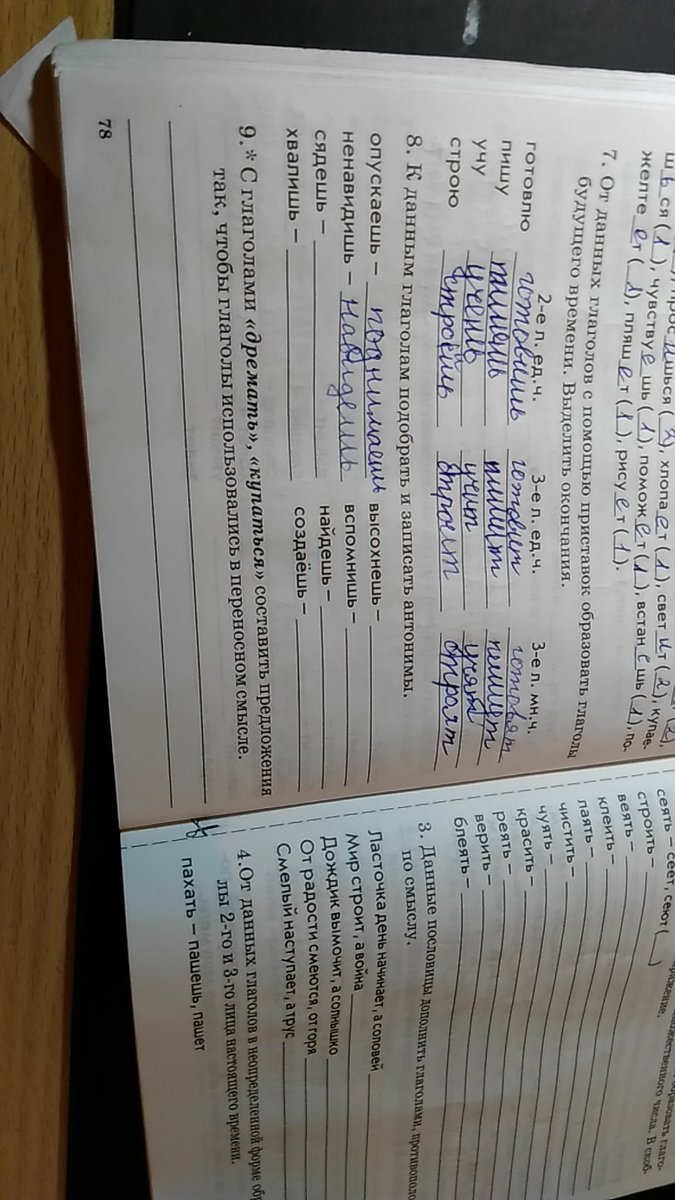 ш ь ся ( 1 ), чувству е шь ( 1 ), помож е т ( 1 ), встан е шь ( 1 ), по-
желте е т ( 1 ), пляш е т ( 1 ), рису е т ( 1 ).
7. От данных глаголов с помощью приставок образовать глаголы
будущего времени. Выделить окончания.
2-е л. ед.ч. 3-е л. ед.ч. 3-е л. мн.ч.
готовлю готовишь готовит готовят
пишу пишешь пишит пишут
учу учешь учит учат
строю строишь строит строят
8. К данным глаголам подобрать и записать антонимы.
опускаешь – поднимаешь высохнешь –
ненавидишь – вспомнишь –
сядешь – найдешь –
хвалишь – создаёшь –
9.* С глаголами «дремать», «купаться» составить предложения
так, чтобы глаголы использовались в переносном смысле.
78
сеять – сеет, сеют ( )
строить –
веять –
клеить –
лаять –
чистить –
чуять –
красить –
реять –
верить –
блеять –
3. Данные пословицы дополнить глаголами, противополо
по смыслу.
Ласточка день начинает, а соловей
Мир строит, а война
Дождик вымочит, а солнышко
От радости смеются, от горя
Смелый наступает, а трус
4. От данных глаголов в неопределенной форме обр
лы 2-го и 3-го лица настоящего времени.
пахать – пашешь, пашет